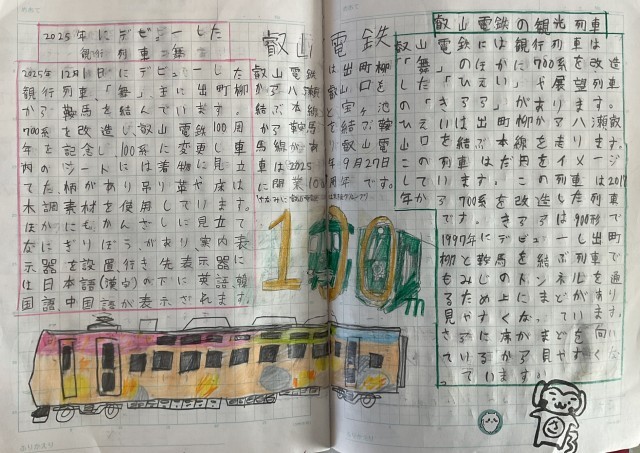 2025年にデビューした
観行列車舞
2025年12月1日にデビューした
観行列車「舞」主に出町柳
から鞍馬を結んでいます。
700系を改造し、叡山電鉄100周
年を記念し100系に変更し車
内のシートには着物に見立
てた柄があり吊り革や床は
木調素材を使用しています。
ほかにもかんざしに見立て
たにぎりぼうがあり案内表
示器を設置、行き先表示器に
は日本語(漢字)の下に英語、韓
国語中国語が表示されます。
叡山電鉄
叡山電鉄は出町柳
から八瀬
鞍馬
です。
100
叡山電鉄の観光列車
叡山電鉄には観行列車は
「舞」のほかに700系を改造
した「ひえい」や展望列車
の「きらら」があります。
ひえいは出町柳から八瀬叡
山口を結ぶ本線を走ります。
この列車はだ円をイメージ
しています。この列車は2017
年から700系を改造した列車
です。きららは900形で
1997年にデビューし出町
柳と鞍馬を結ぶ列車で
もみじのトンネルを通
るため上にまどがあり
見やすくなっています。
さらに席がまどを向い
ているから見やすくな
っています。